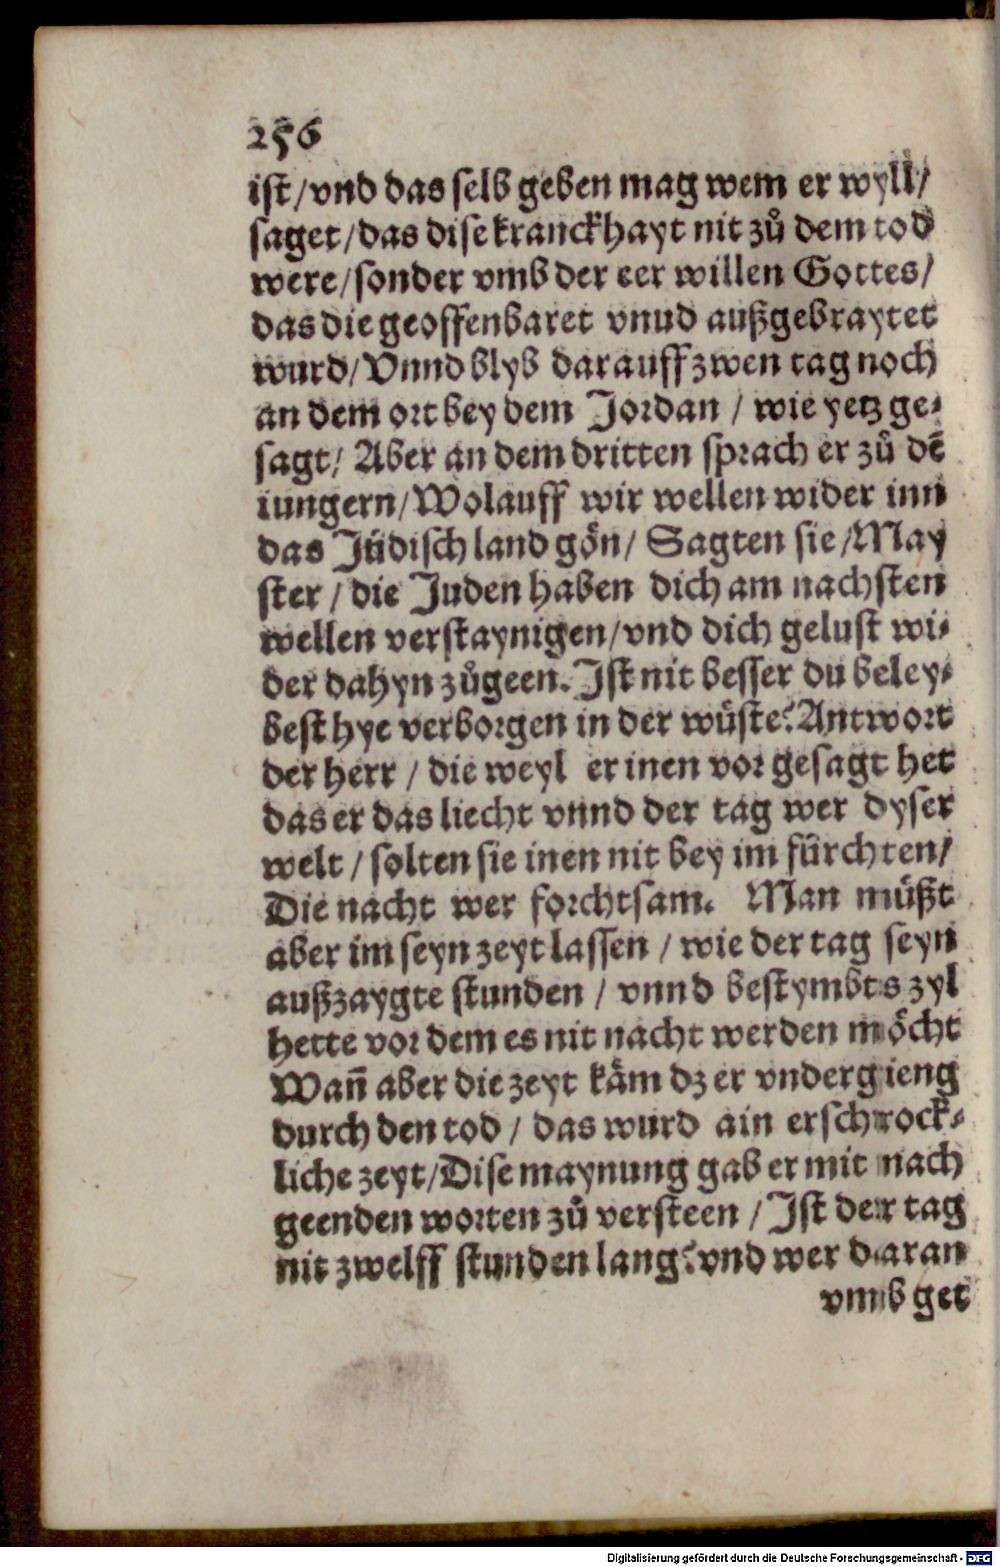 256
ist/vnd das selb geben mag wem er wyll/
saget/das dise kranckhayt nit zů dem tod
were/sonder vmb der eer willen Gottes/
das die geoffenbaret vnud außgebraytet
wurd/Vnnd blyb darauff zwen tag noch
an dem ort bey dem Jordan / wie yetz ge⸗
sagt/ Aber an dem dritten sprach er zů dẽ
iungern/Wolauff wir wellen wider inn
das Jüdisch land gön/ Sagten sie/May
ster / die Juden haben dich am nachsten
wellen verstaynigen/vnd dich gelust wi⸗
der dahyn zůgeen. Ist nit besser du beley⸗
best hye verborgen in der wüste? Antwort
der herr / die weyl er inen vor gesagt het
das er das liecht vnnd der tag wer dyser
welt / solten sie inen nit bey im fürchten/
Die nacht wer forchtsam. Man müßt
aber im seyn zeyt lassen / wie der tag seyn
außzaygte stunden / vnnd bestymbts zyl
hette vor dem es nit nacht werden möcht
Wañ aber die zeyt käm dz er vndergieng
durch den tod / das wurd ain erschrock⸗
liche zeyt/Dise maynung gab er mit nach
geenden worten zů versteen / Ist der tag
nit zwelff stunden lang? vnd wer daran
vmb get
Digitalisierung gefördert durch die Deutsche Forschungsgemeinschaft - DFG